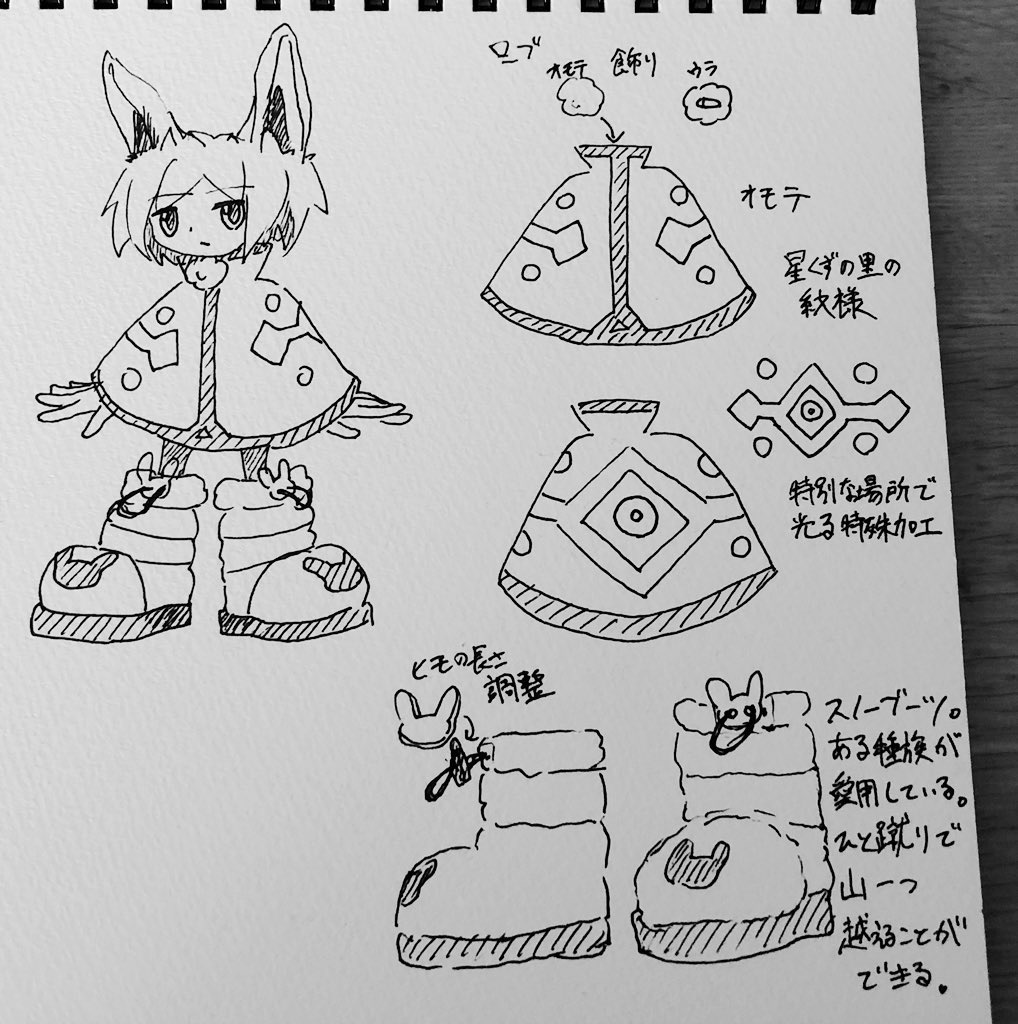 ローブ
オモテ 飾り ウラ
オモテ
星くずの里の
紋様
特別な場所で
光る特殊加工
ヒモの長さ
調整
スノーブーツ。
ある種族が
愛用している。
ひと蹴りで
山一つ
越えることが
できる。